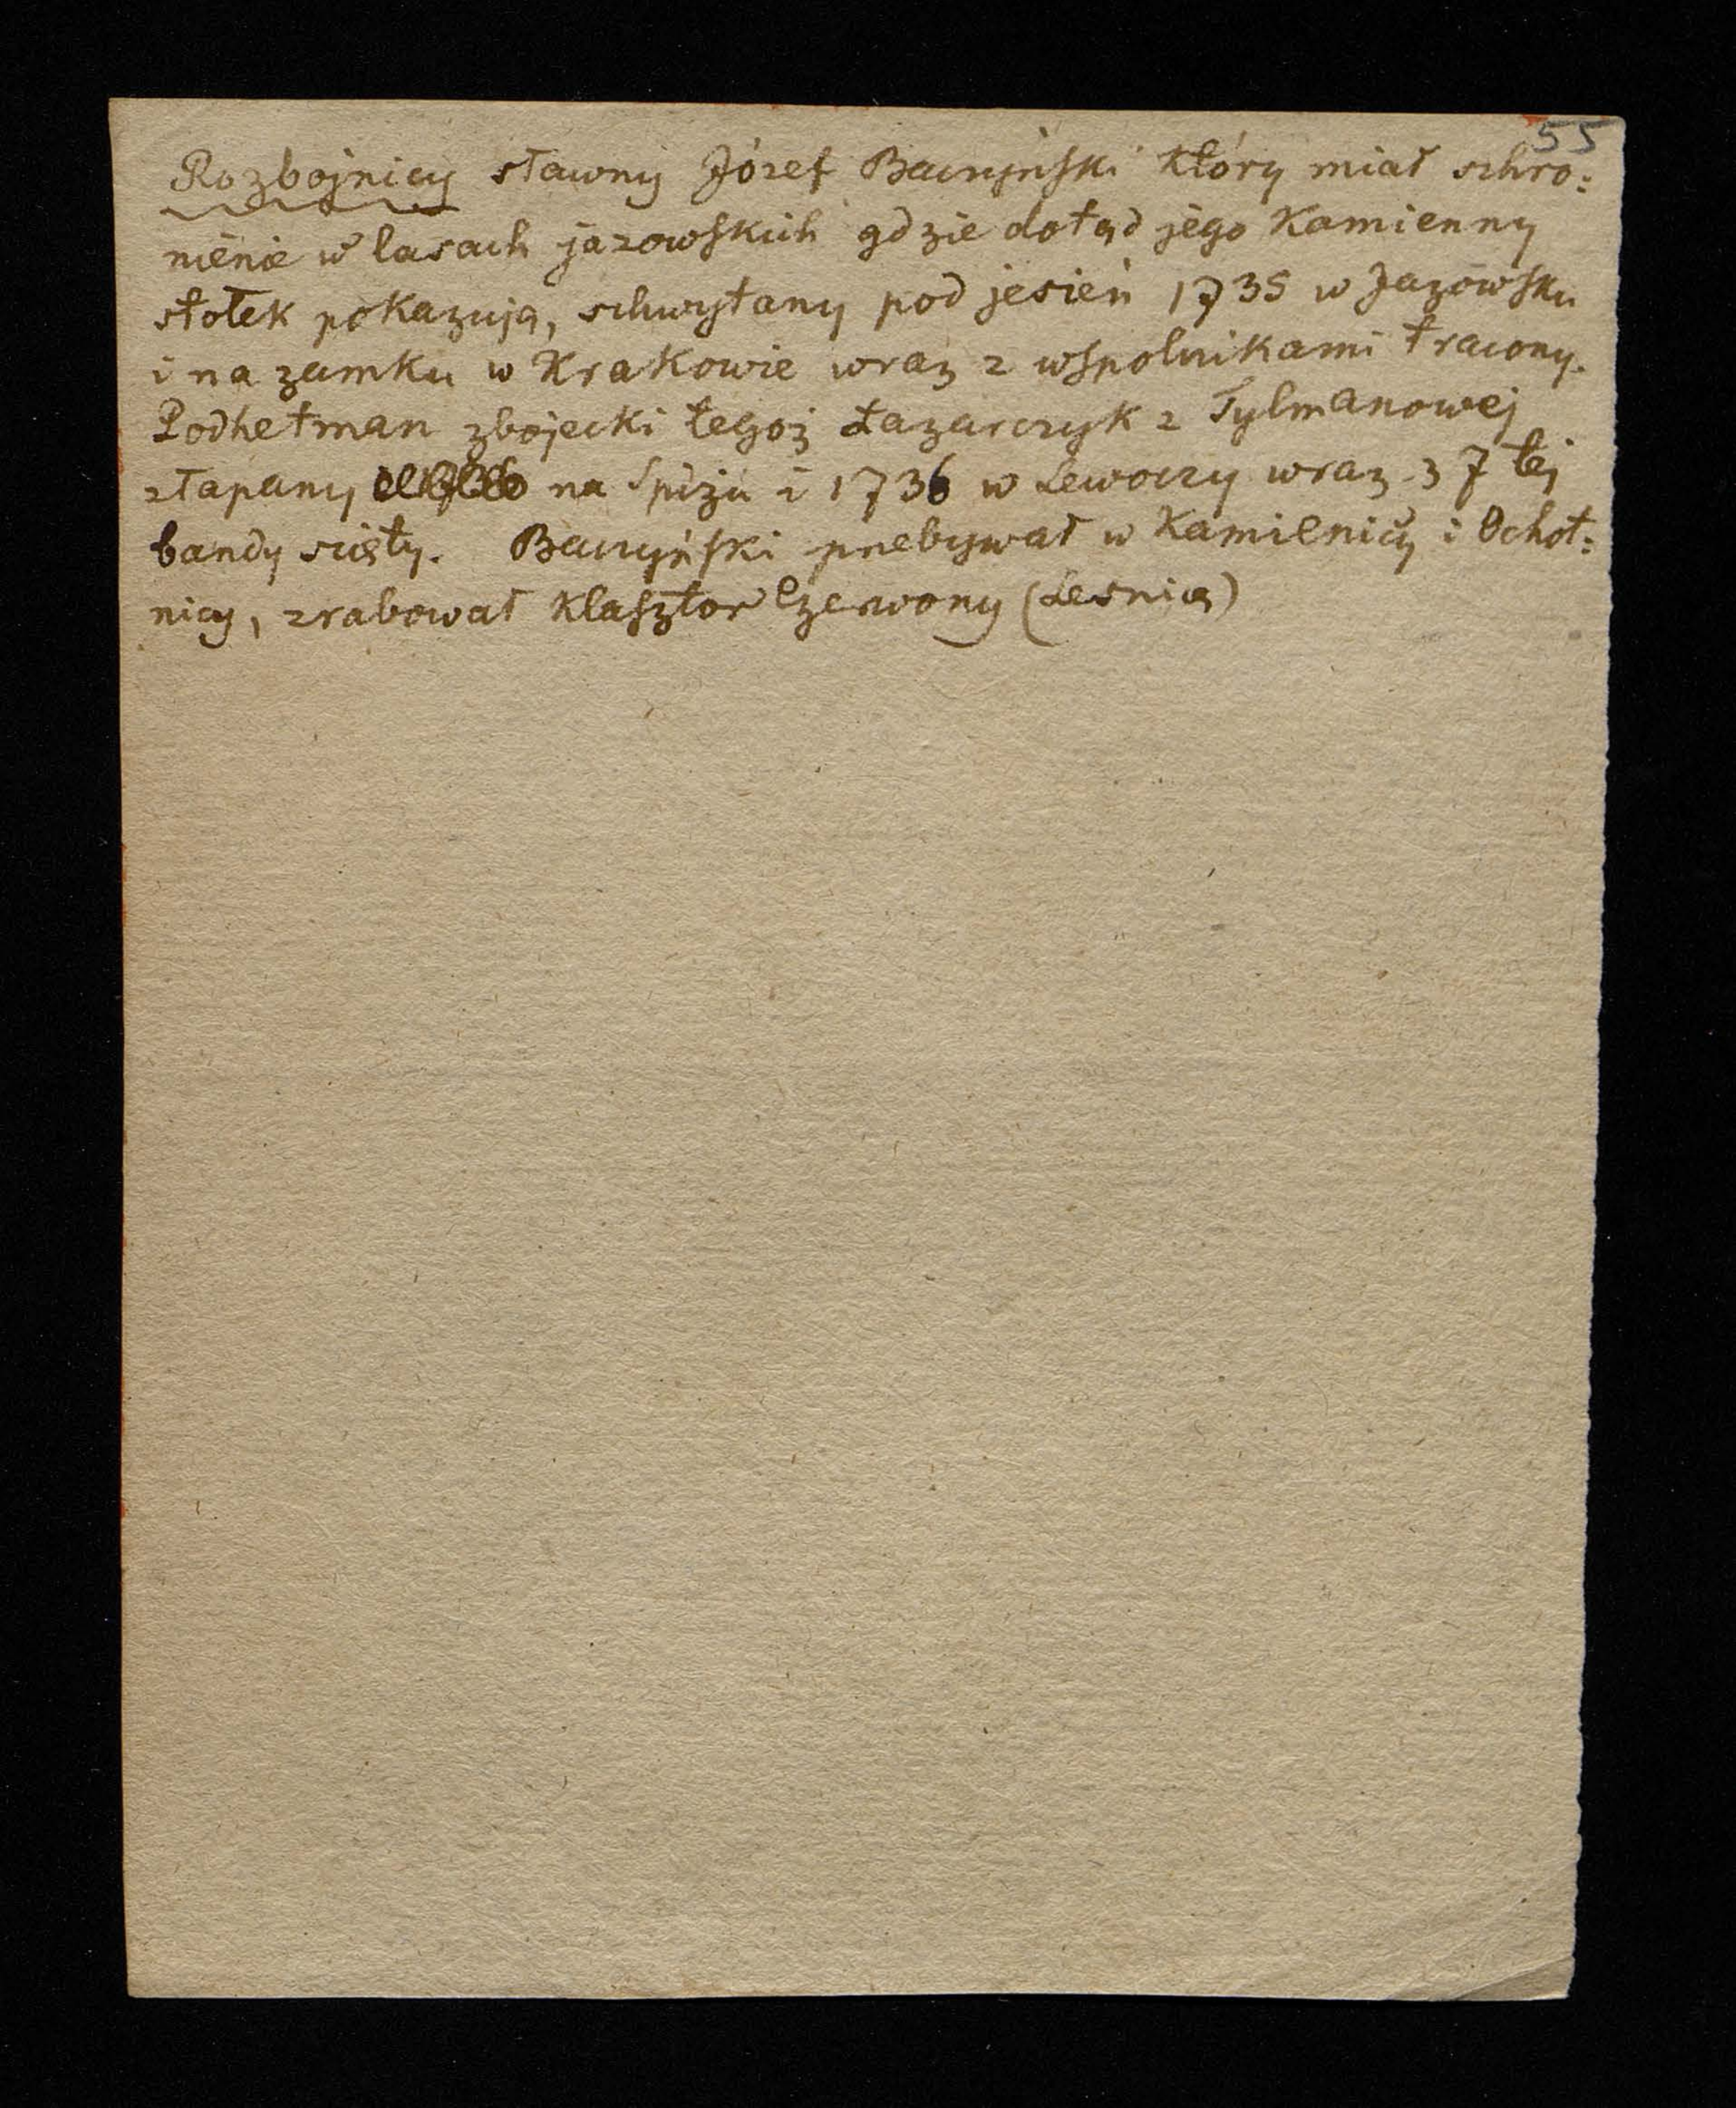 55
Rozbojnicy sławny Józef Baczyński który miał schro:
nienie w lasach jazowskich gdzie dotąd jego kamienny
stołek pokazują, schwytany pod jesień 1735 w Jazowsku
i na zamku w Krakowie wraz z wspolnikami tracony.
Podhetman zbojecki tegoż Łazarczyk z Tylmanowej
złapany na Spiżu i 1736 w Lewoczy wraz z 7 tej
bandy sięty. Baczyński przebywał w Kamienicy i Ochot:
nicy, zrabował klasztor Czerwony (Lesnica)